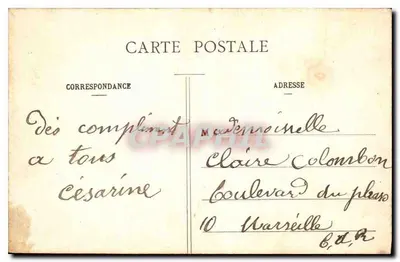 CARTE POSTALE
CORRESPONDANCE
ADRESSE
Dès compliment
a tous
Césarine
Mademoiselle
Claire Colombon
boulevard du
10 Marseille